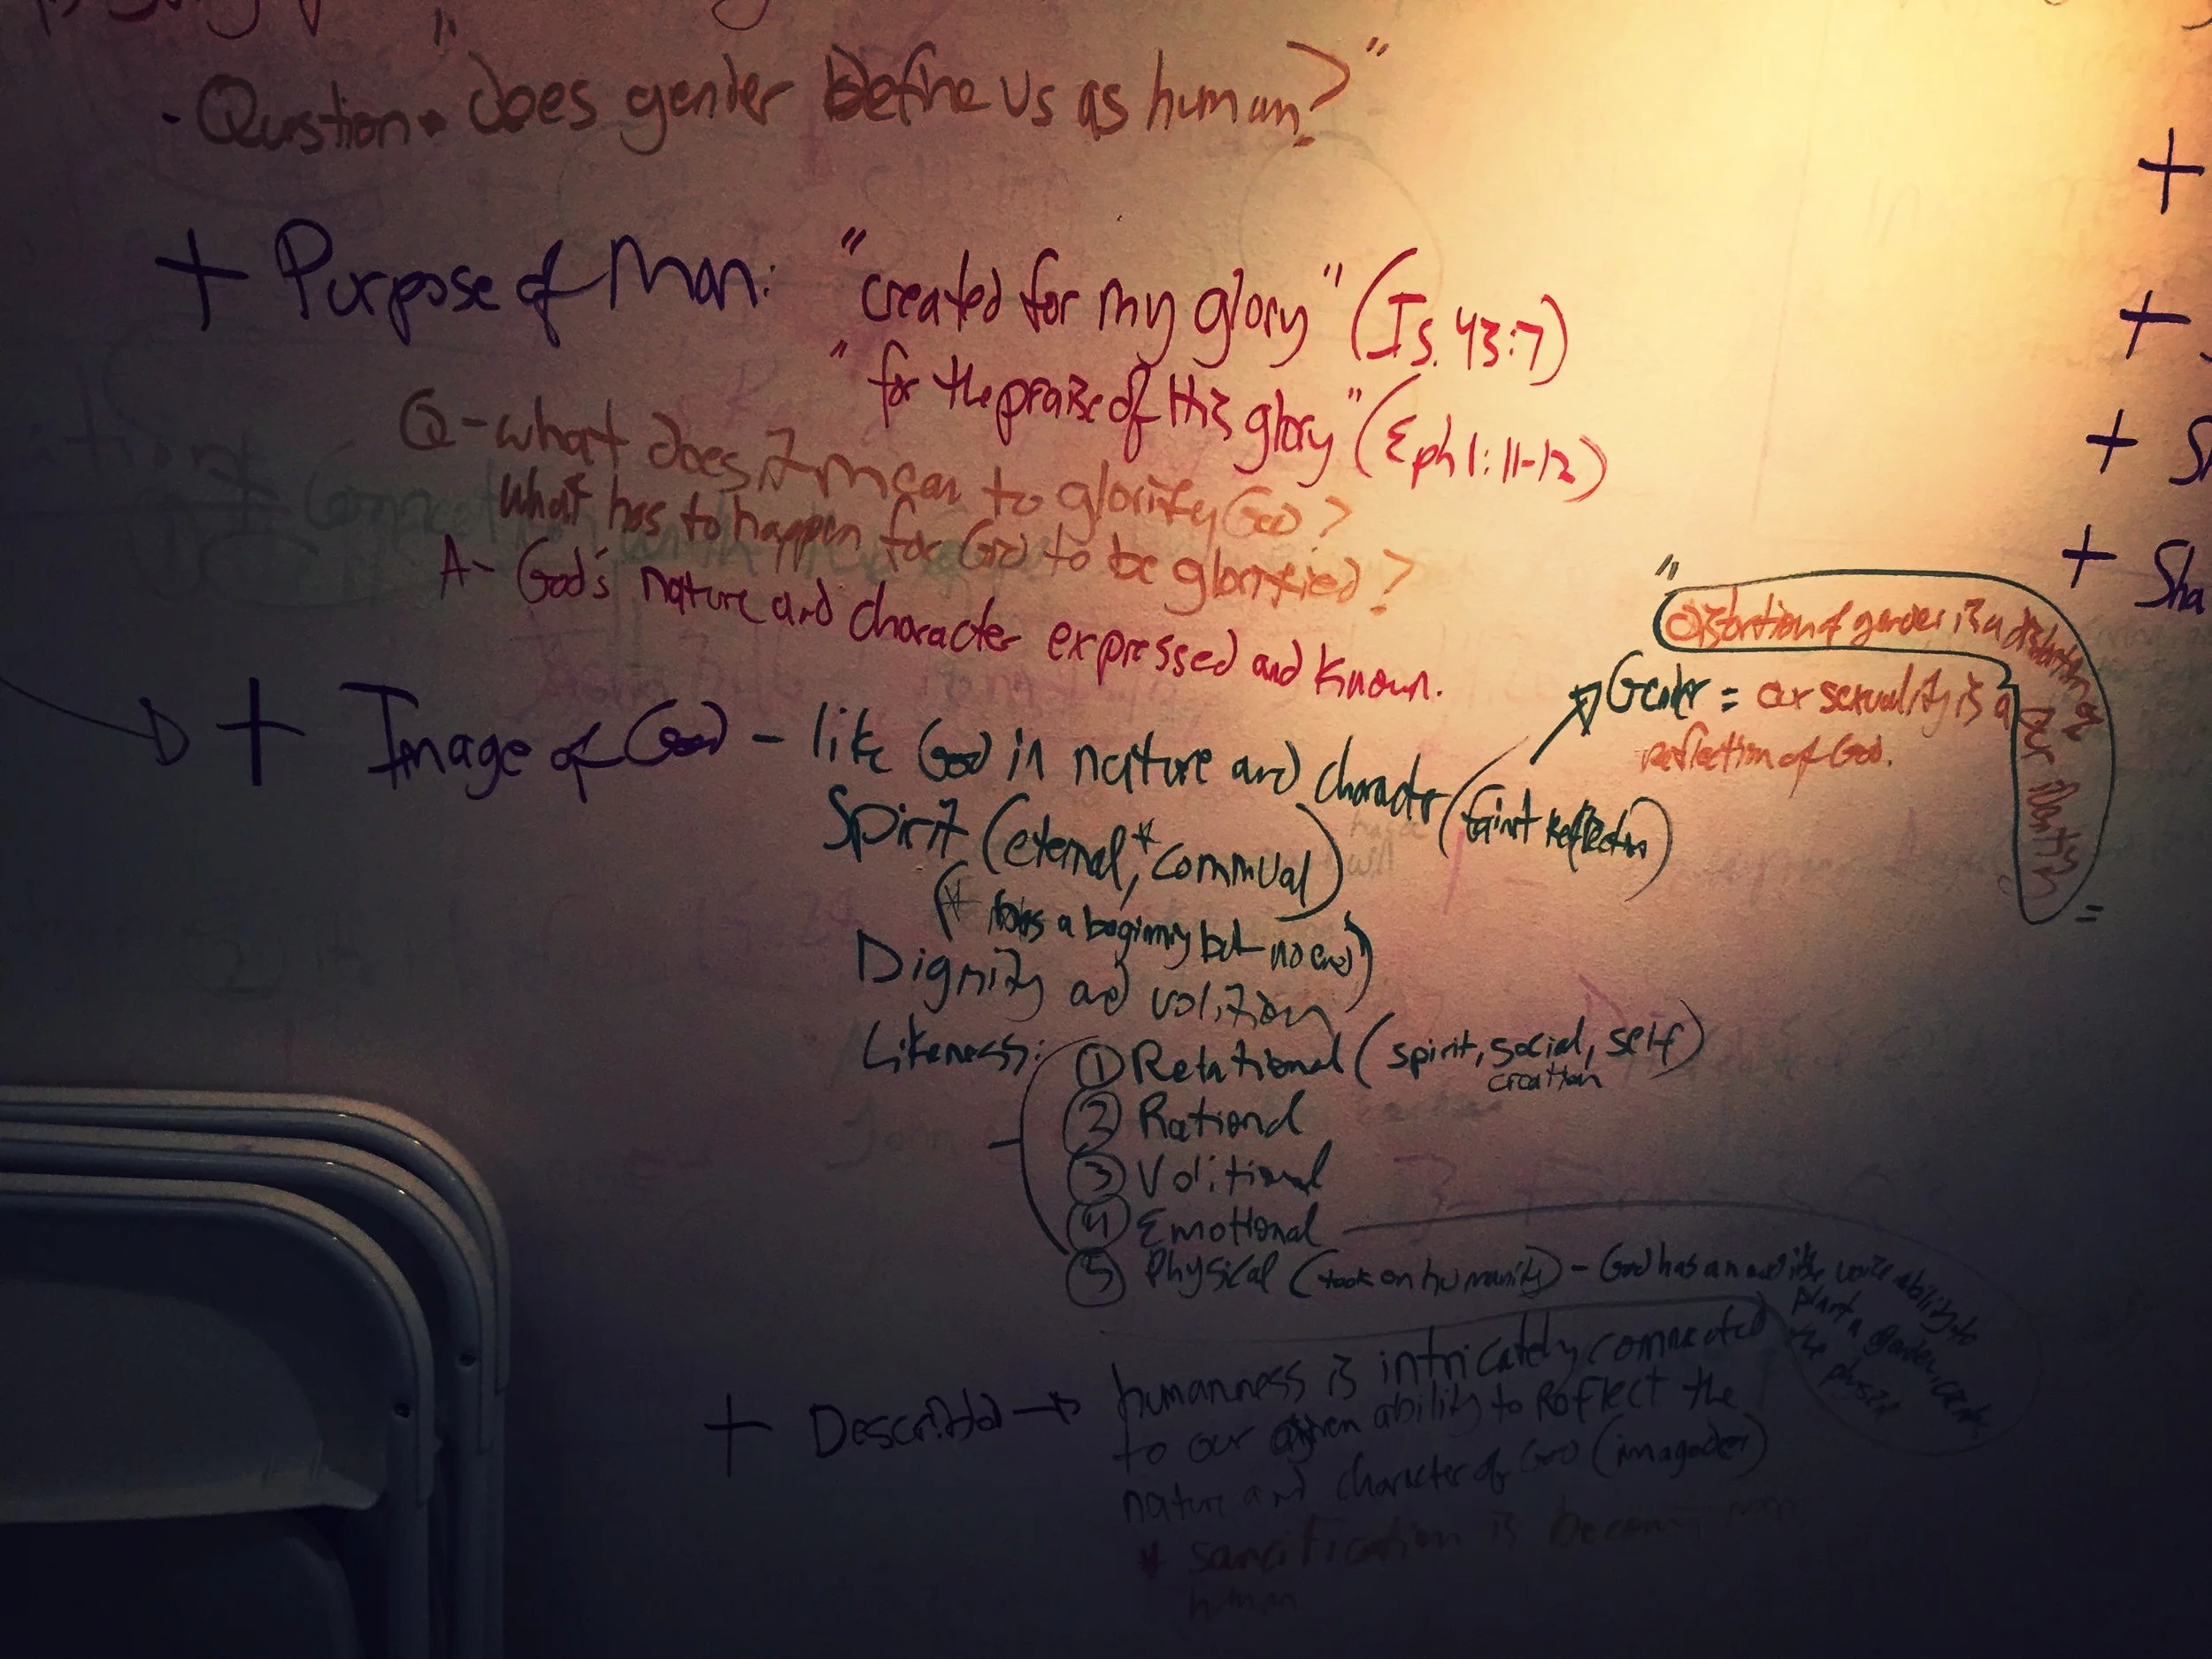 - Qustion • "does gender define us as human?"
+ Purpose of Man: "created for my glory" (Is. 43:7)
"for the praise of His glory" (Eph 1:11-12)
Q - what does it mean to glorify God?
what has to happen for God to be glorified?
A - God's nature and character expressed and known.
"Distortion of gender is a distortion of our identity"
Gender = our sexuality is a
reflection of God.
+ Image of God - like God in nature and character (faint reflection)
Spirit (eternal*, communal)
(* has a beginning but no end)
Dignity and volition
Likeness:
① Relational (spirit, social, self)
creation
② Rational
③ Volitional
④ Emotional
⑤ Physical (took on humanity) - God has an audible voice ability to
plant a garden,
the
+ → humanness is intricately connected
to our given ability to reflect the
nature and character of God (imago dei)
* sancification is becoming more
human
+
+
+
+ Sha